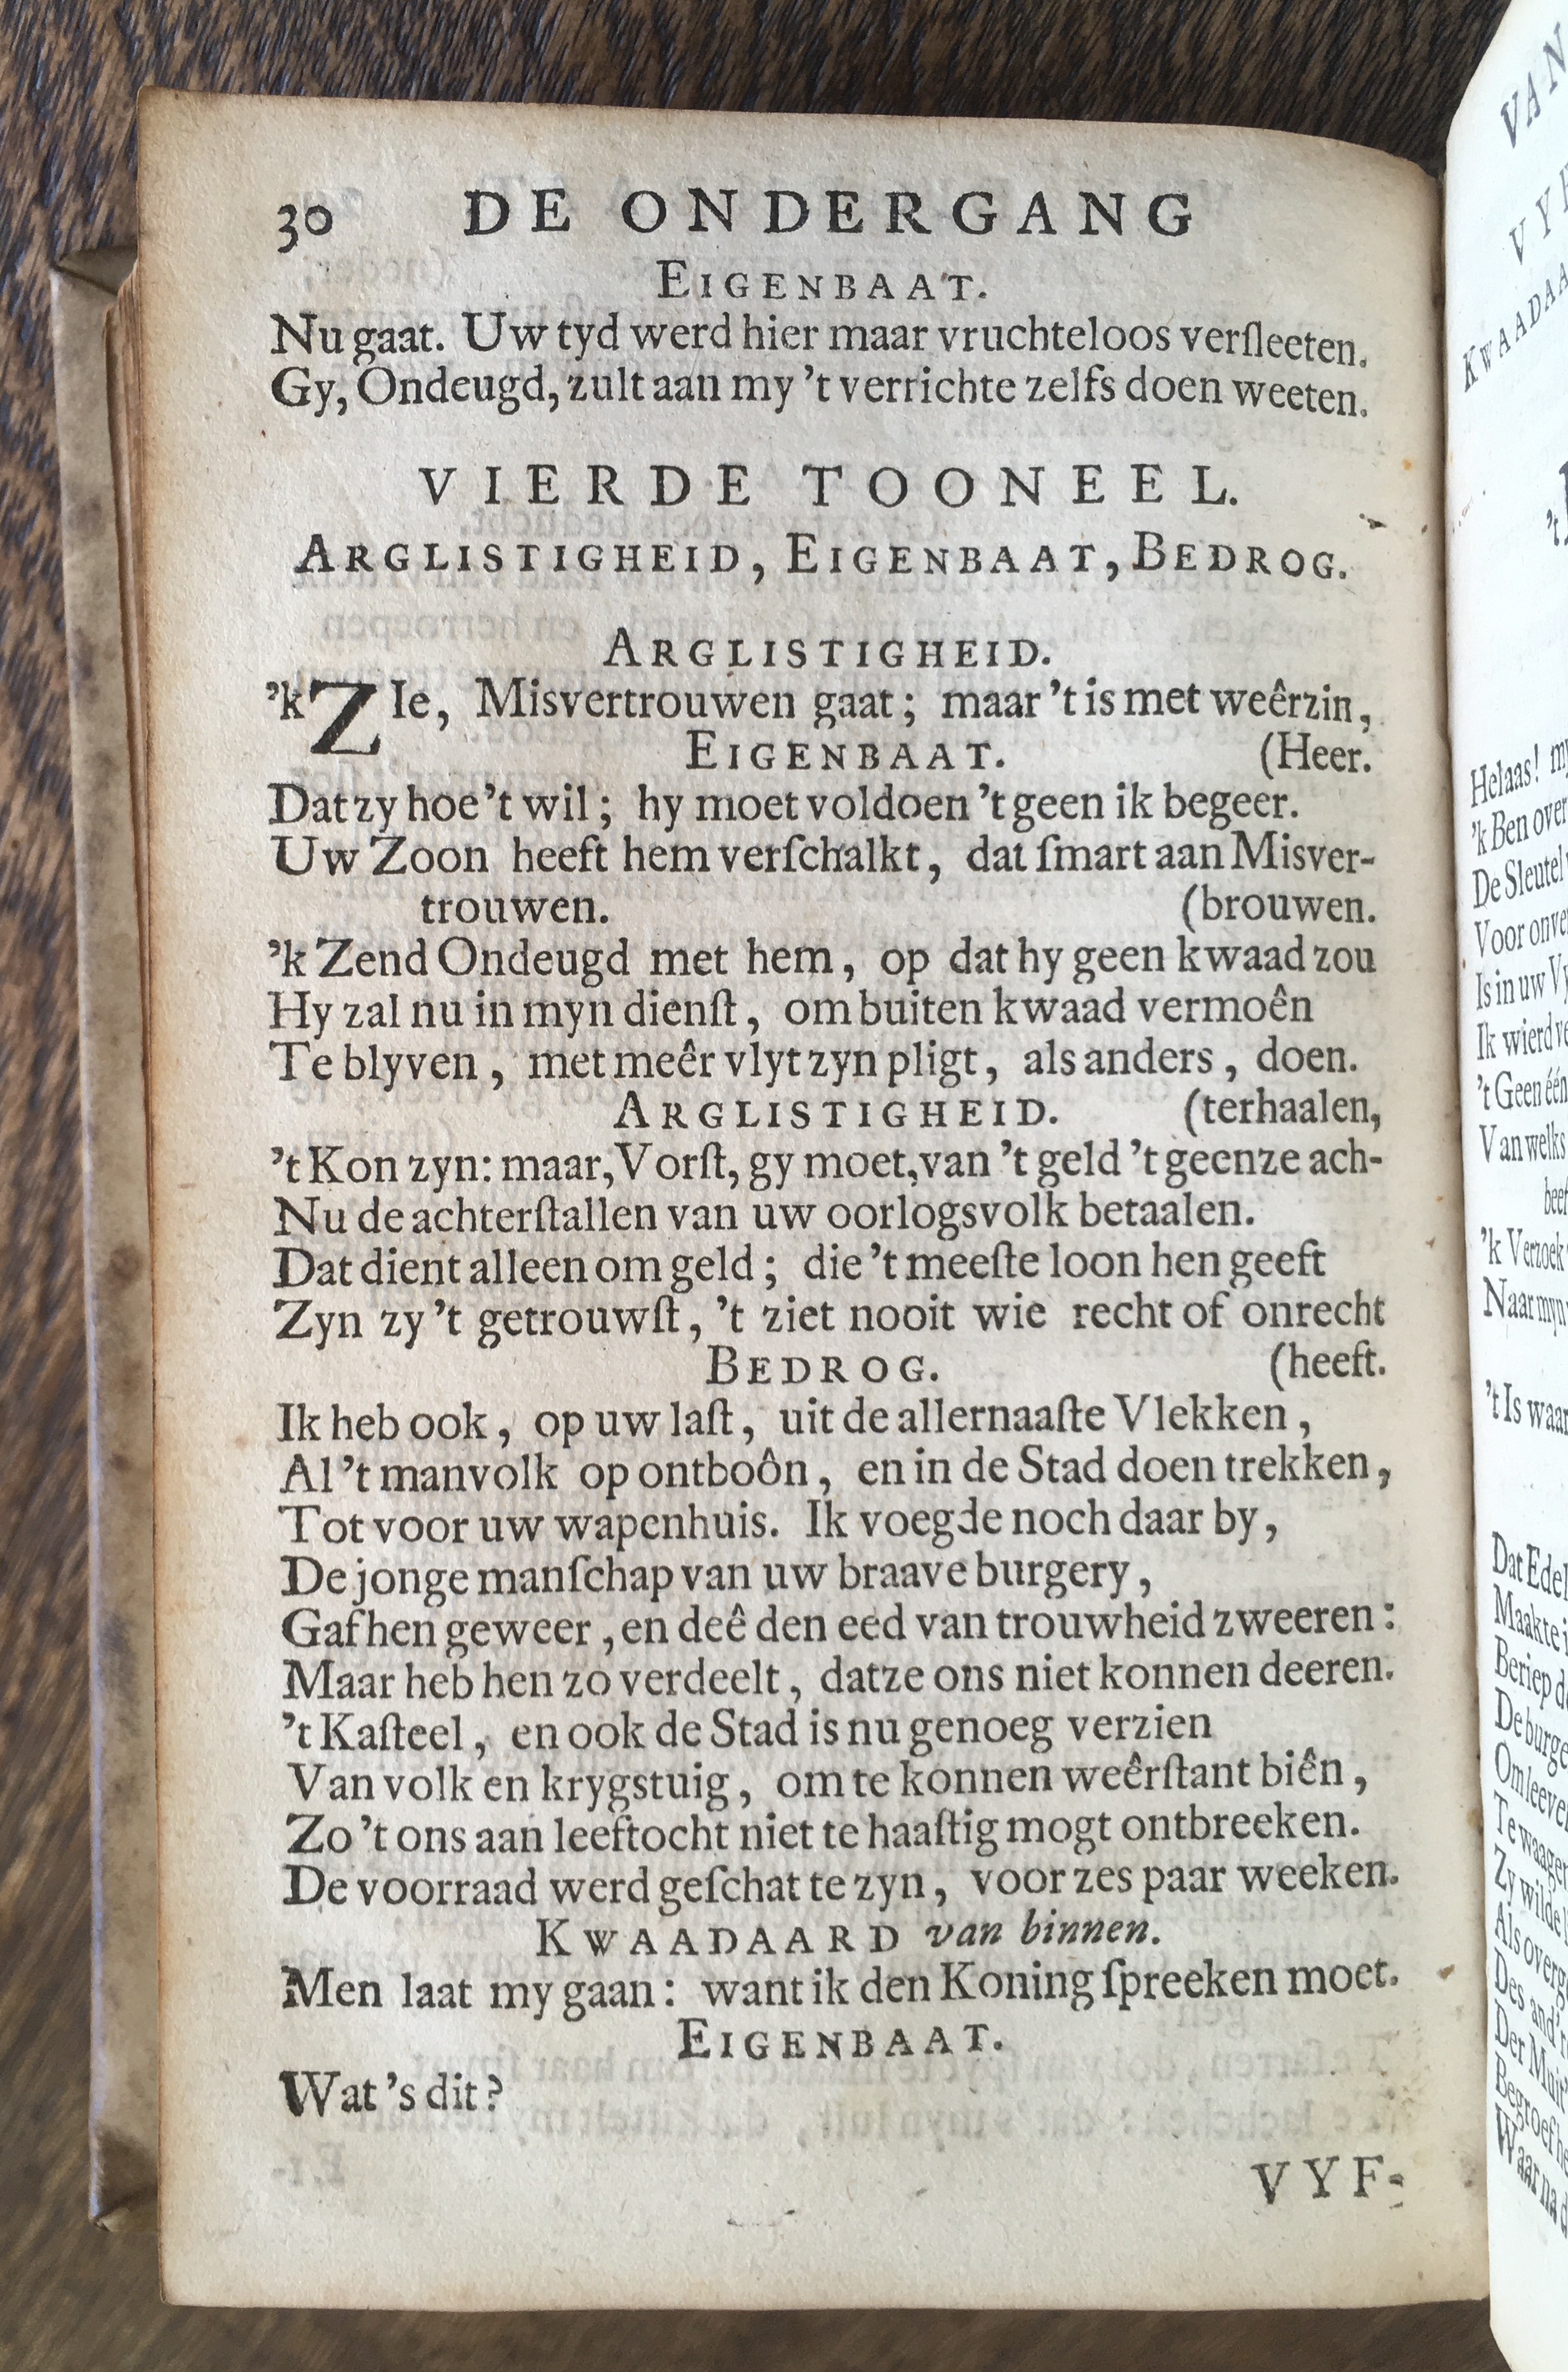 30 DE ONDERGANG
EIGENBAAT.
Nu gaat. Uw tyd werd hier maar vruchteloos verſleeten.
Gy, Ondeugd, zult aan my 't verrichte zelfs doen weeten.
VIERDE TOONEEL.
ARGLISTIGHEID, EIGENBAAT, BEDROG.
ARGLISTIGHEID.
'k ZIe, Misvertrouwen gaat; maar 't is met weêrzin,
EIGENBAAT. (Heer.
Dat zy hoe 't wil; hy moet voldoen 't geen ik begeer.
Uw Zoon heeft hem verſchalkt, dat ſmart aan Misver-
trouwen. (brouwen.
'k Zend Ondeugd met hem, op dat hy geen kwaad zou
Hy zal nu in myn dienſt, om buiten kwaad vermoên
Te blyven, met meêr vlyt zyn pligt, als anders, doen.
ARGLISTIGHEID. (terhaalen,
't Kon zyn: maar, Vorſt, gy moet, van 't geld 't geenze ach-
Nu de achterſtallen van uw oorlogsvolk betaalen.
Dat dient alleen om geld; die 't meeſte loon hen geeft
Zyn zy 't getrouwſt, 't ziet nooit wie recht of onrecht
BEDROG. (heeft.
Ik heb ook, op uw laſt, uit de allernaaſte Vlekken,
Al 't manvolk op ontboôn, en in de Stad doen trekken,
Tot voor uw wapenhuis. Ik voegde noch daar by,
De jonge manſchap van uw braave burgery,
Gaf hen geweer, en deê den eed van trouwheid zweeren:
Maar heb hen zo verdeelt, datze ons niet konnen deeren.
't Kaſteel, en ook de Stad is nu genoeg verzien
Van volk en krygstuig, om te konnen weêrſtant biên,
Zo 't ons aan leeftocht niet te haaſtig mogt ontbreeken.
De voorraad werd geſchat te zyn, voor zes paar weeken.
KWAADAARD van binnen.
Men laat my gaan: want ik den Koning ſpreeken moet.
EIGENBAAT.
Wat 's dit?
VYF-
VAN
VY
KWAADAA
't
Helaas! my
'k Ben over
De Sleutel
Voor onve
Is in uw Vy
Ik wierd ve
't Geen één
Van welks
heef
'k Verzoek
Naar myn
't Is waar
Dat Edel
Maakte i
Beriep d
De burge
Om leeve
Te waagen
Zy wilde
Als overg
Des and'r
Der Muit
Begroef he
Waar na d